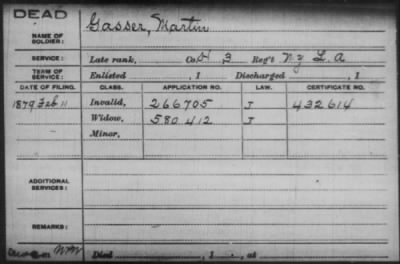 DEAD
NAME OF SOLDIER: Gasser, Martin
SERVICE: Late rank, Co. H 3 Reg't N.Y. L. A
TERM OF SERVICE: Enlisted , 1 Discharged , 1
DATE OF FILING. CLASS. APPLICATION NO. LAW. CERTIFICATE NO.
1879 Feb 11 Invalid, 266705 J 432614
Widow, 580412 J
Minor,
ADDITIONAL SERVICES:
REMARKS:
Died , 1 , at